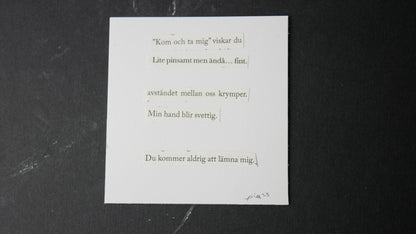 "Kom och ta mig" viskar du
Lite pinsamt men ändå... fint.
avståndet mellan oss krymper.
Min hand blir svettig.
Du kommer aldrig att lämna mig.